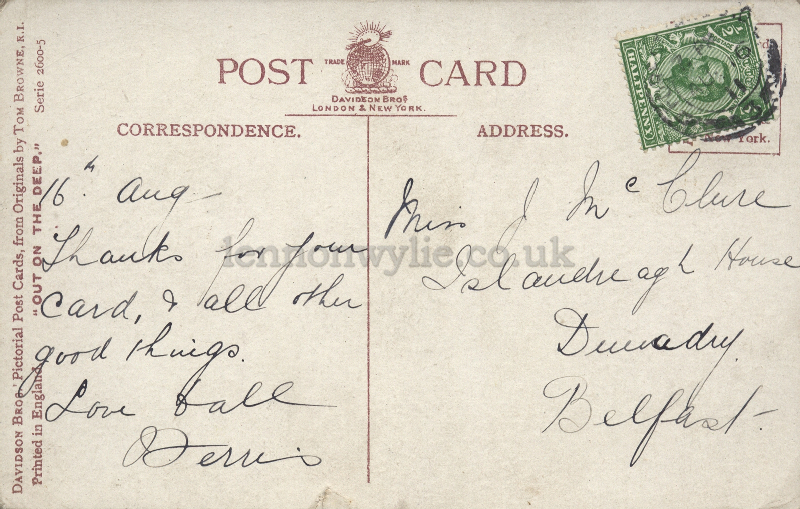 POST CARD
TRADE MARK
DAVIDSON BROS
LONDON & NEW YORK.
CORRESPONDENCE.
ADDRESS.
HALFPENNY
1/2
New York.
16th Aug
Thanks for your
card, & all other
good things.
Love to all
Miss J McClure
Islandreagh House
Dunadry
Belfast
DAVIDSON BROS.' Pictorial Post Cards, from Originals by TOM BROWNE, R.I.
Serie 2600-5
"OUT ON THE DEEP."
Printed in England.
lennonwylie.co.uk